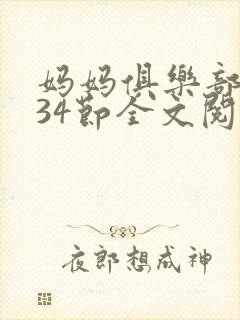 妈妈俱樂部
34節全文閱
夜郎想成神